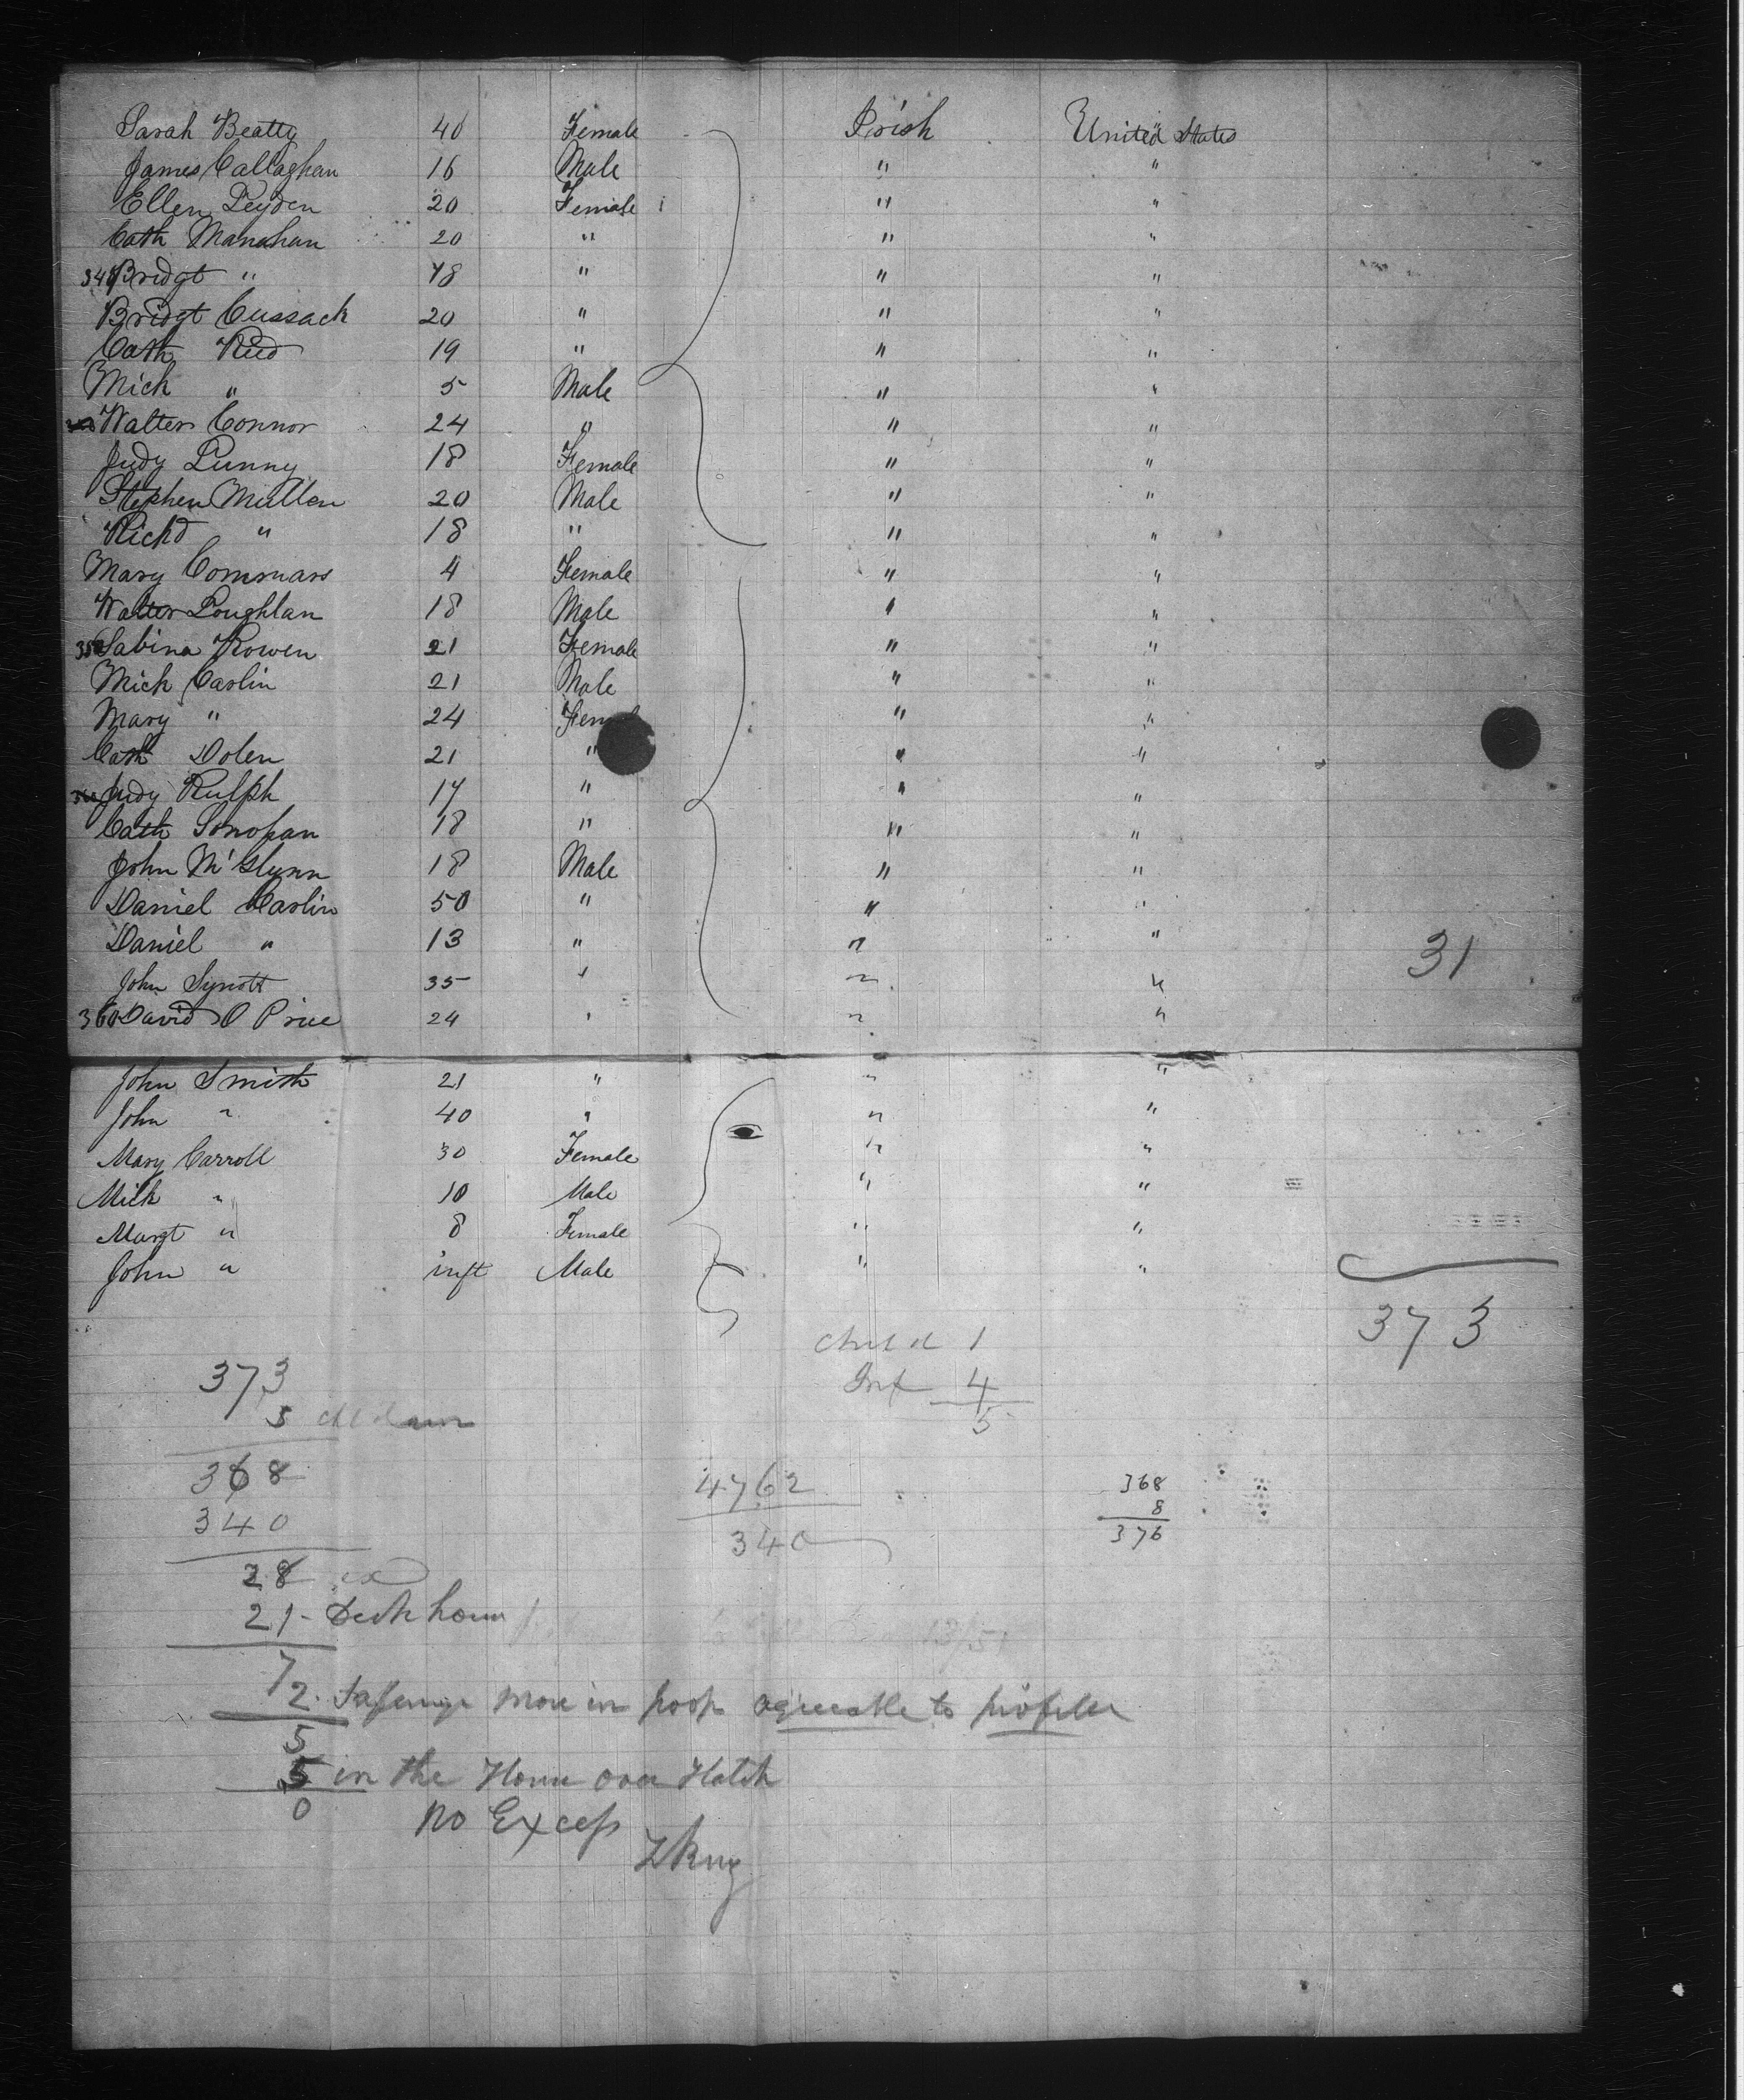 Sarah Beatty 40 Female Irish United States
James Callaghan 16 Male " "
Ellen Leyden 20 Female " "
Cath Manahan 20 " " "
Bridgt " 18 " " "
Bridgt Cussack 20 " " "
Cath Reed 19 " " "
Mich " 5 Male " "
Walter Connor 24 " " "
Judy Lunny 18 Female " "
Stephen Mullen 20 Male " "
Richd " 18 " " "
Mary 4 Female " "
Walter Loughlan 18 Male " "
Sabina Rowen 21 Female " "
Mich Carlin 21 Male " "
Mary " 24 Female " "
Cath Dolen 21 " " "
Judy Rulph 17 " " "
Cath 18 " " "
John McGlynn 18 Male " "
Daniel Carlin 50 " " "
Daniel " 13 " " " 31
John Synott 35 " " "
360 David O Price 24 " " "
John Smith 21 " " "
John " 40 " " "
Mary Carroll 30 Female " "
Mich " 10 Male " "
Margt " 8 Female " "
John " inft Male " "
373
Child 1
373 Inf 4
5 children 5
368 4762 368
340 340 8
376
28 ex
21 - Deck house
7
2. Passengers more in poop agreeable to
5
5 in the House over Hatch
0 No Excess